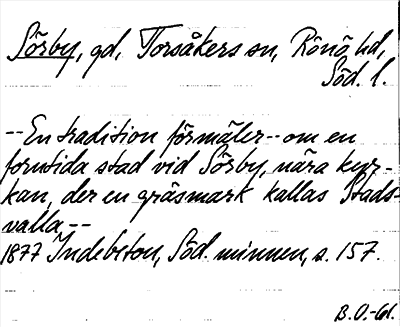 Sörby, gd, Torsåkers sn, Rönö hd,
Söd. l.
--En tradition förmäler--om en
forntida stad vid Sörby, nära kyr-
kan, der en gräsmark kallas Stads-
valla--
1877 Indebetou, Söd. minnen, s. 157.
B.O.-61.